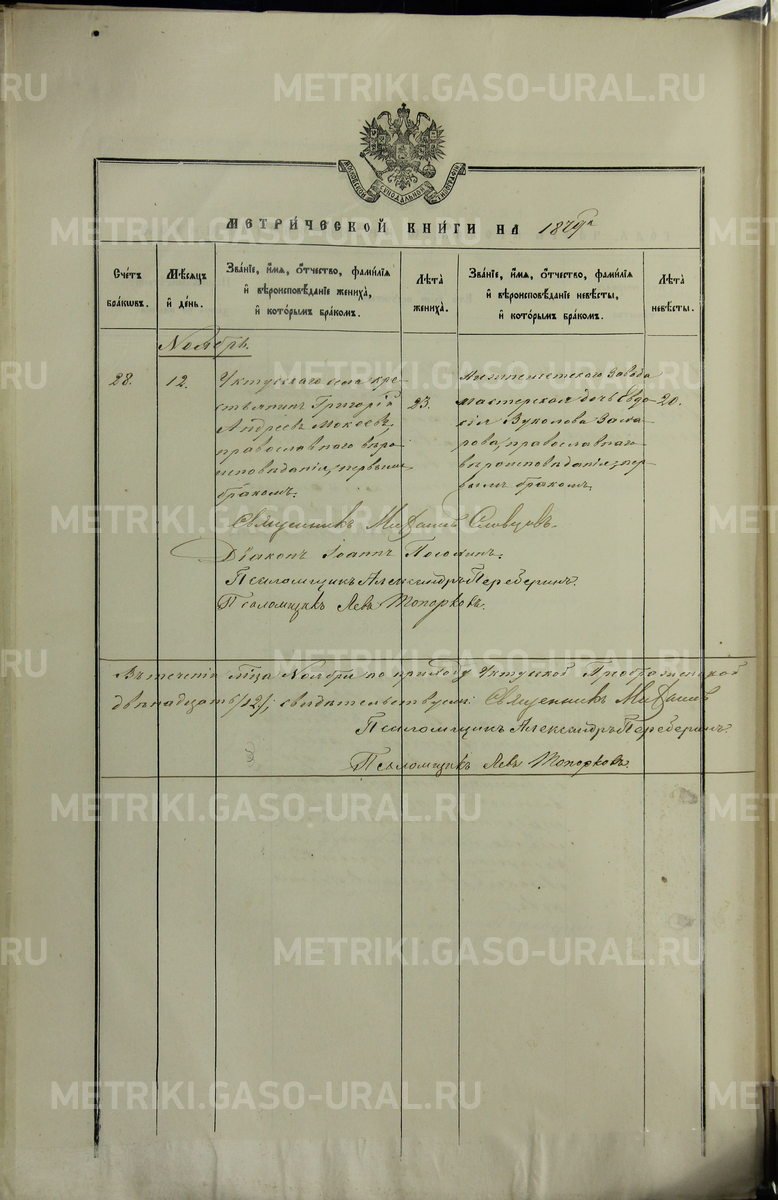 METRIKI.GASO-URAL.RU
МОСКОВСКОЙ СѴНОДАЛЬНОЙ ТИПОГРАФІИ
МЕТРИ́ЧЕСКОЙ КНИ́ГИ НА
Счéтъ бра́кѡвъ.
Мѣ́сяцъ и́ де́нь.
Зва́ніе, и́мя, ѻ́тчество, фами́лія и́ вѣроисповѣ́даніе жениха̀, и́ кото́рымъ бра́комъ.
Лѣта̀ жениха̀.
Зва́ніе, и́мя, ѻ́тчество, фами́лія и́ вѣроисповѣ́даніе невѣ́сты, и́ кото́рымъ бра́комъ.
Лѣта̀ невѣ́сты.
Ноябрь.
28.
12.
Уктусскаго села кре-
стьянинъ Григорій
Андреевъ Мокеевъ,
православнаго вѣро-
исповѣданія, первымъ
бракомъ.
23.
Завода
мастерская дочь Евдо-
кія Вуколова
православнаго
вѣроисповѣданія, пер-
вымъ бракомъ.
20.
Священникъ Михаилъ Словцовъ.
Діаконъ Іоаннъ
Псаломщикъ Александръ Переберинъ.
Псаломщикъ Левъ Топорковъ.
Въ теченіи м҃ца Ноября по приходу Уктусской Преображенской
двѣнадцать /12/; свидѣтельствуемъ: Священникъ Михаилъ
Псаломщикъ Александръ Переберинъ.
Псаломщикъ Левъ Топорковъ.